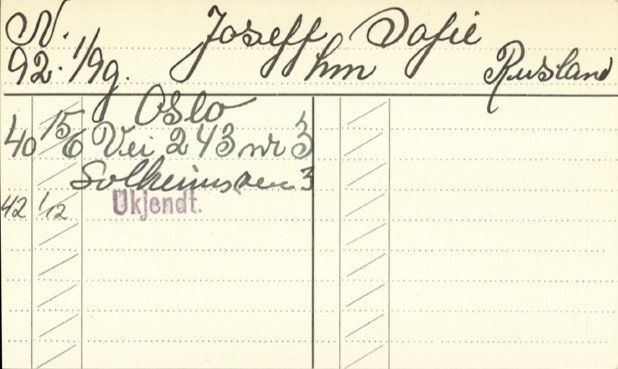 N. Joseff Sofie
92. 1/9g. hm Rusland
Oslo
40 15/6 Vei 243 nr 3
Solheimsveien 3
42 1/12 Ukjendt.